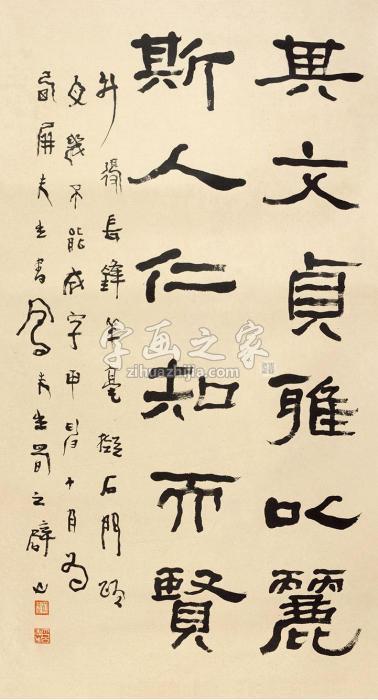 其文貞雅以麗
斯人仁知而賢
升 長鋒羊毫擬石門頌
皮幾不能成字甲 十月為
屏夫生書 夫生蜀之 山
字画之家
zihuazhijia.com